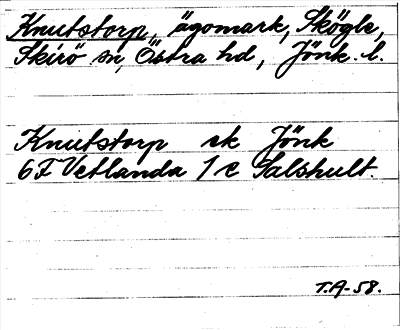 Knutstorp, ägomark, Skögle,
Skirö sn, Östra hd, Jönk. l.
Knutstorp ek Jönk
6F Vetlanda 1c Salshult.
T.A-58.